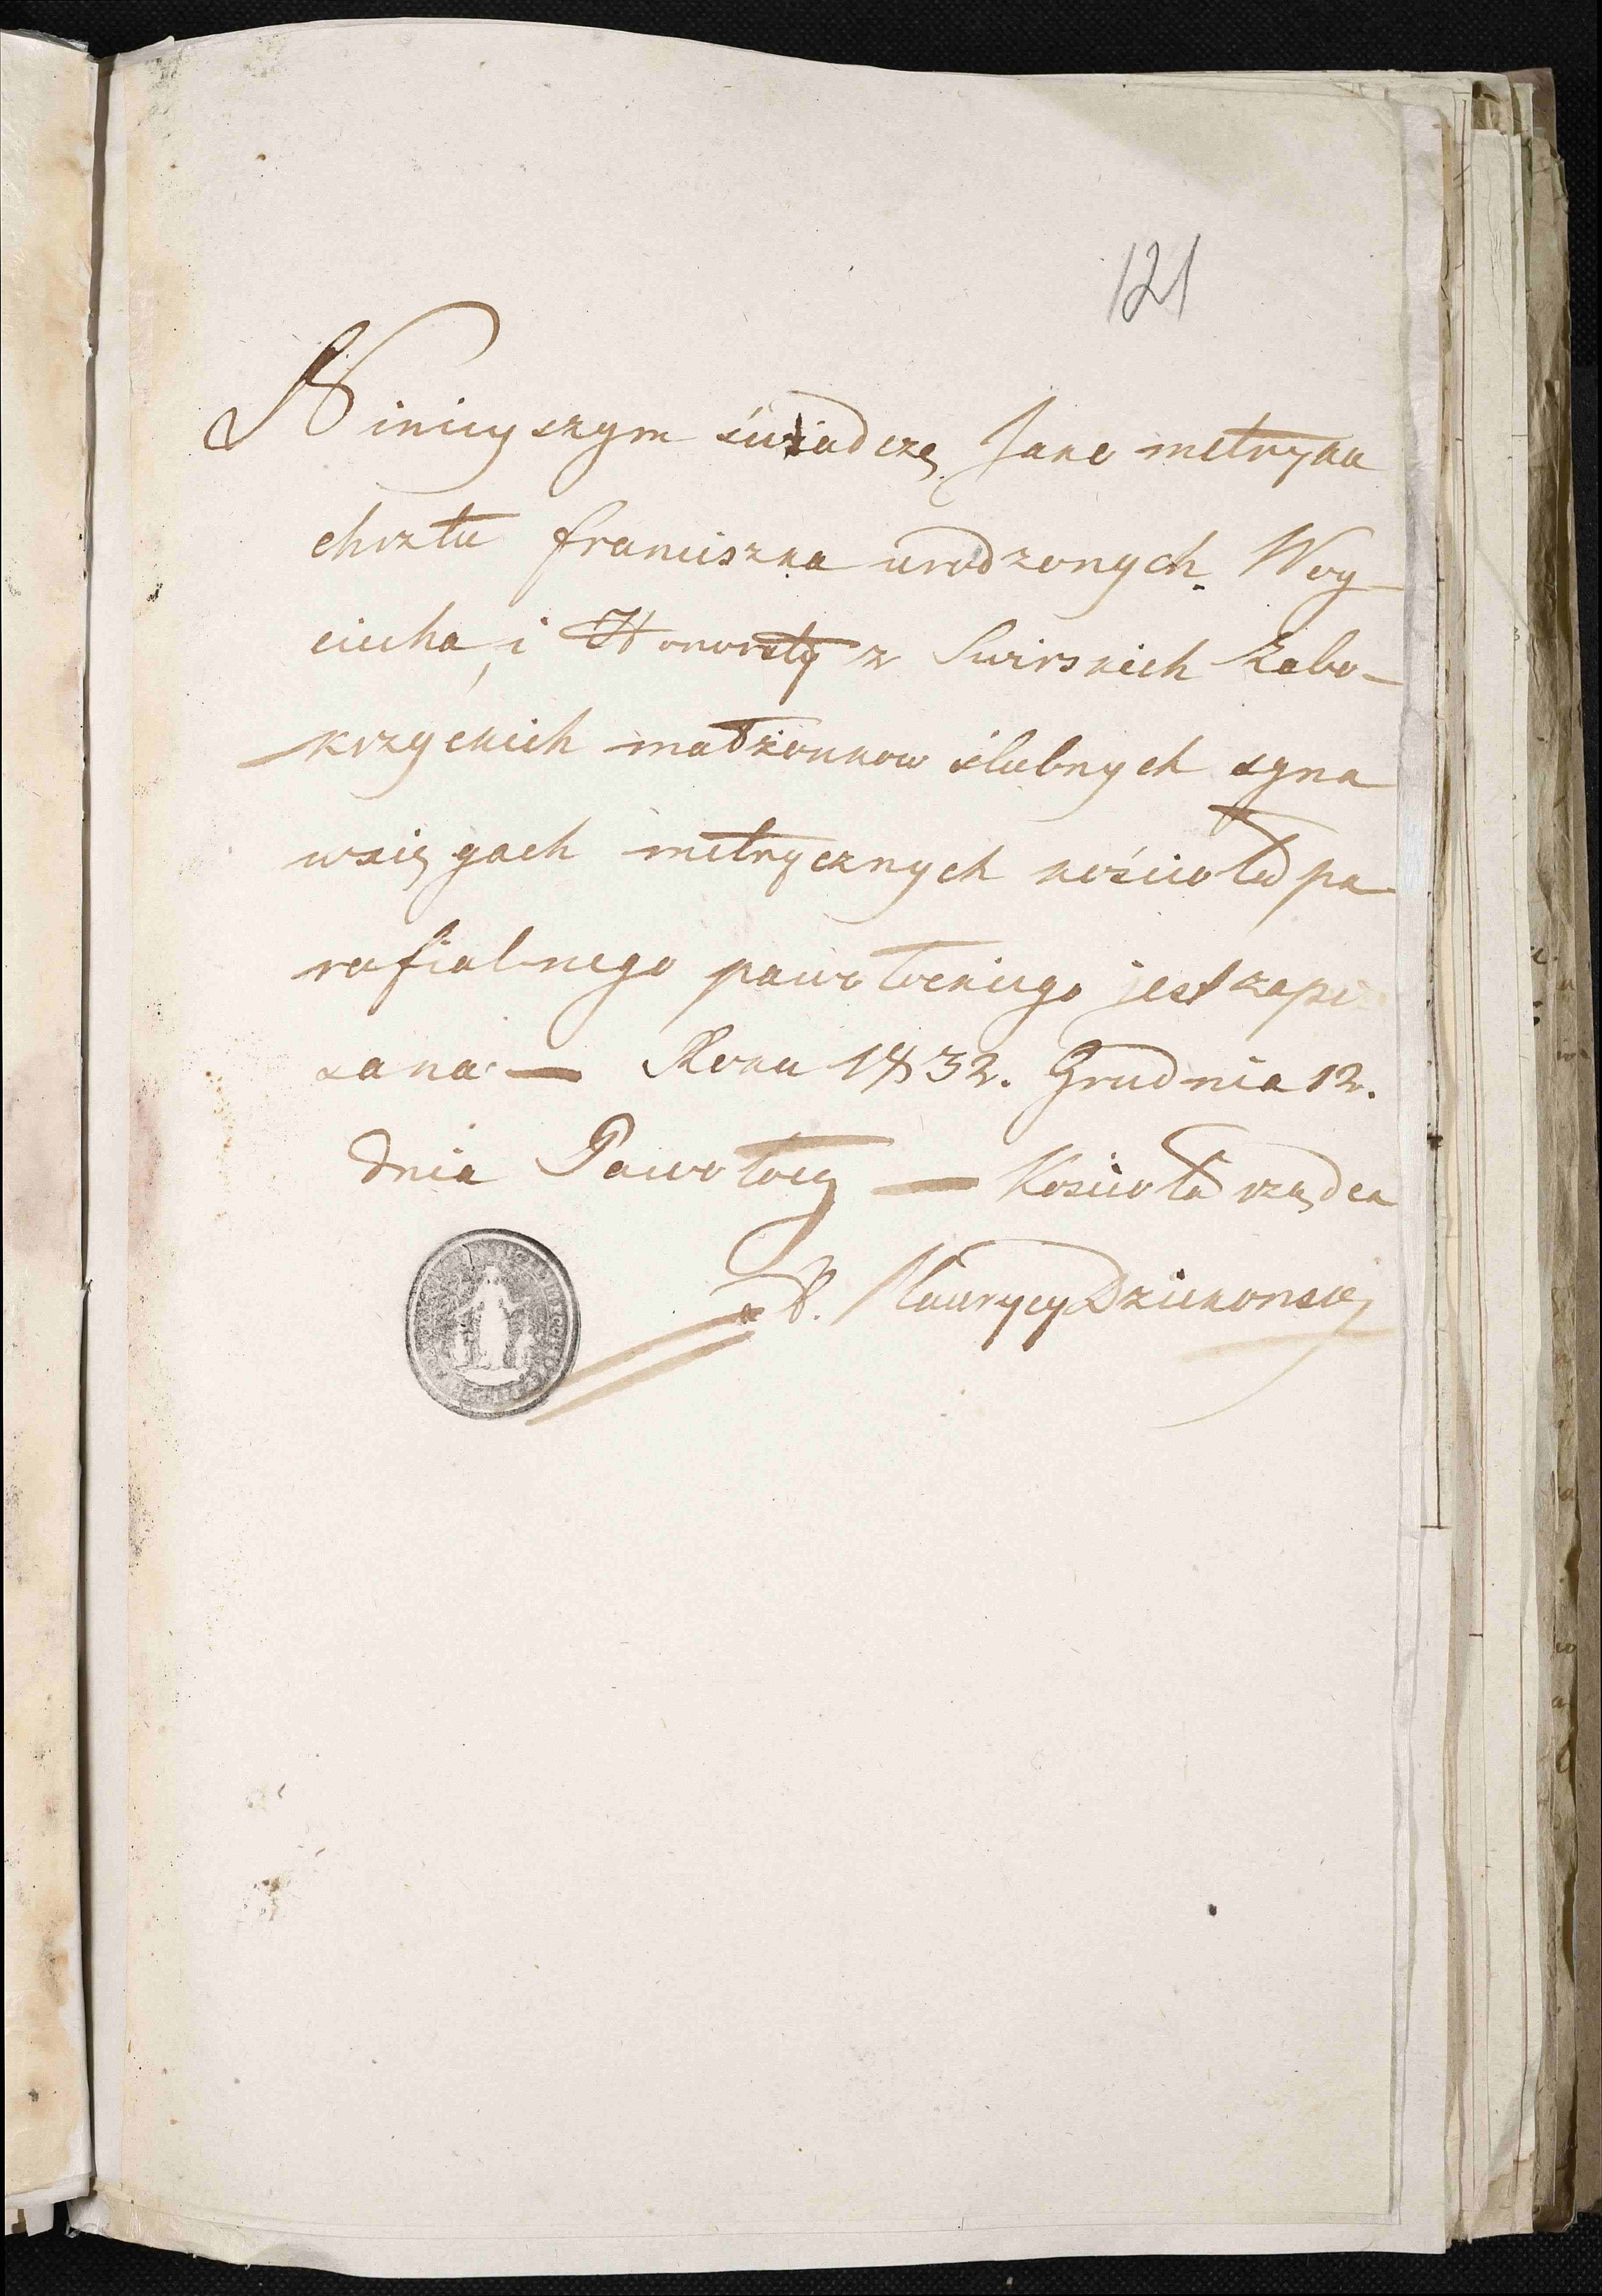 121
Niniejszym świadczę Jako metryka
chrztu franciszka urodzonych Woy-
ciecha, i Honoraty z Swirskich Zabo-
krzyckich małżonkow ślubnych syna
wxięgach metrycznych kościoła pa-
rafialnego pawołockiego jest zapi
sana — Roku 1832. Grudnia 12.
dnia Pawołocy — Kościoła rządca
X. Maurycy Dziekonski